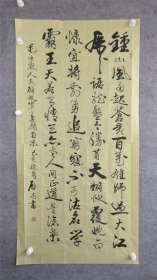 鍾山風雨起蒼黃百万雄師過大江
虎踞龍盤今勝昔天翻地覆慨而
慷宜將剩勇追窮寇不可沽名學
霸王天若有情天亦老人間正道是滄桑
毛澤東人民解放軍占領南京